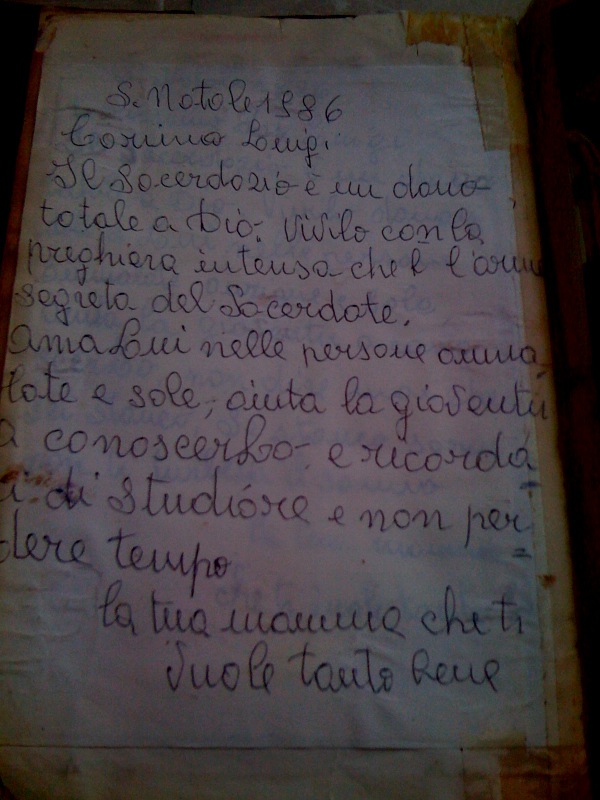 S. Natale 1986
Carissimo Luigi
Il Sacerdozio è un dono
totale a Dio. Vivilo con la
preghiera intensa che è l'arma
segreta del Sacerdote.
Ama Lui nelle persone amma
late e sole, aiuta la gioventù
a conoscerLo e ricorda
ti di studiare e non per
dere tempo
la tua mamma che ti
vuole tanto bene